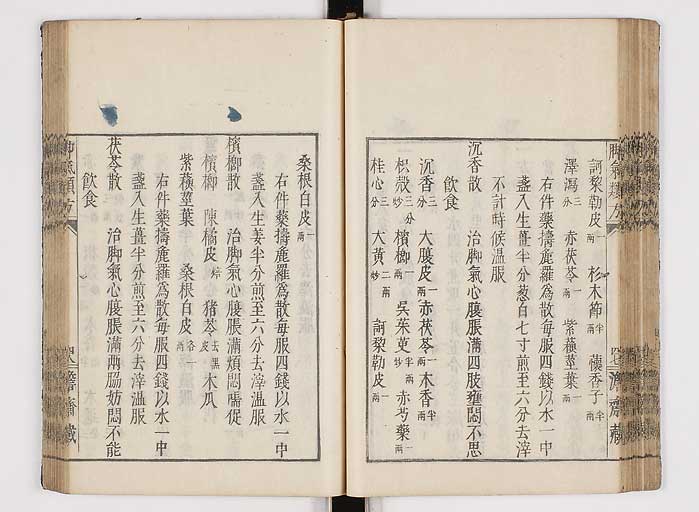 訶黎勒皮一兩 杉木節半兩 蘹香子半兩
澤瀉三分 赤茯苓一兩 紫蘓莖葉一兩
右件藥擣麄羅為散每服四錢以水一中
盞入生薑半分葱白七寸煎至六分去滓
不計時候温服
沉香散 治脚氣心腹脹滿四肢壅悶不思
飲食
沉香三分 大腹皮一兩 赤茯苓一兩 木香半兩
枳殼三分炒 檳榔一兩 吳茱萸半兩炒 赤芍藥一兩
桂心三分 大黃二兩炒 訶黎勒皮一兩
桑根白皮一兩
右件藥擣麄羅為散每服四錢以水一中
盞入生姜半分煎至六分去滓温服
檳榔散 治脚氣心腹脹滿煩悶喘促
檳榔 陳橘皮焙 猪苓去黑皮 木瓜
紫蘓莖葉 桑根白皮各一兩
右件藥擣麄羅為散每服四錢以水一中
盞入生薑半分煎至六分去滓温服
茯苓散 治脚氣心腹脹滿兩脇妨悶不能
飲食
脚氣類方
濟齋藏